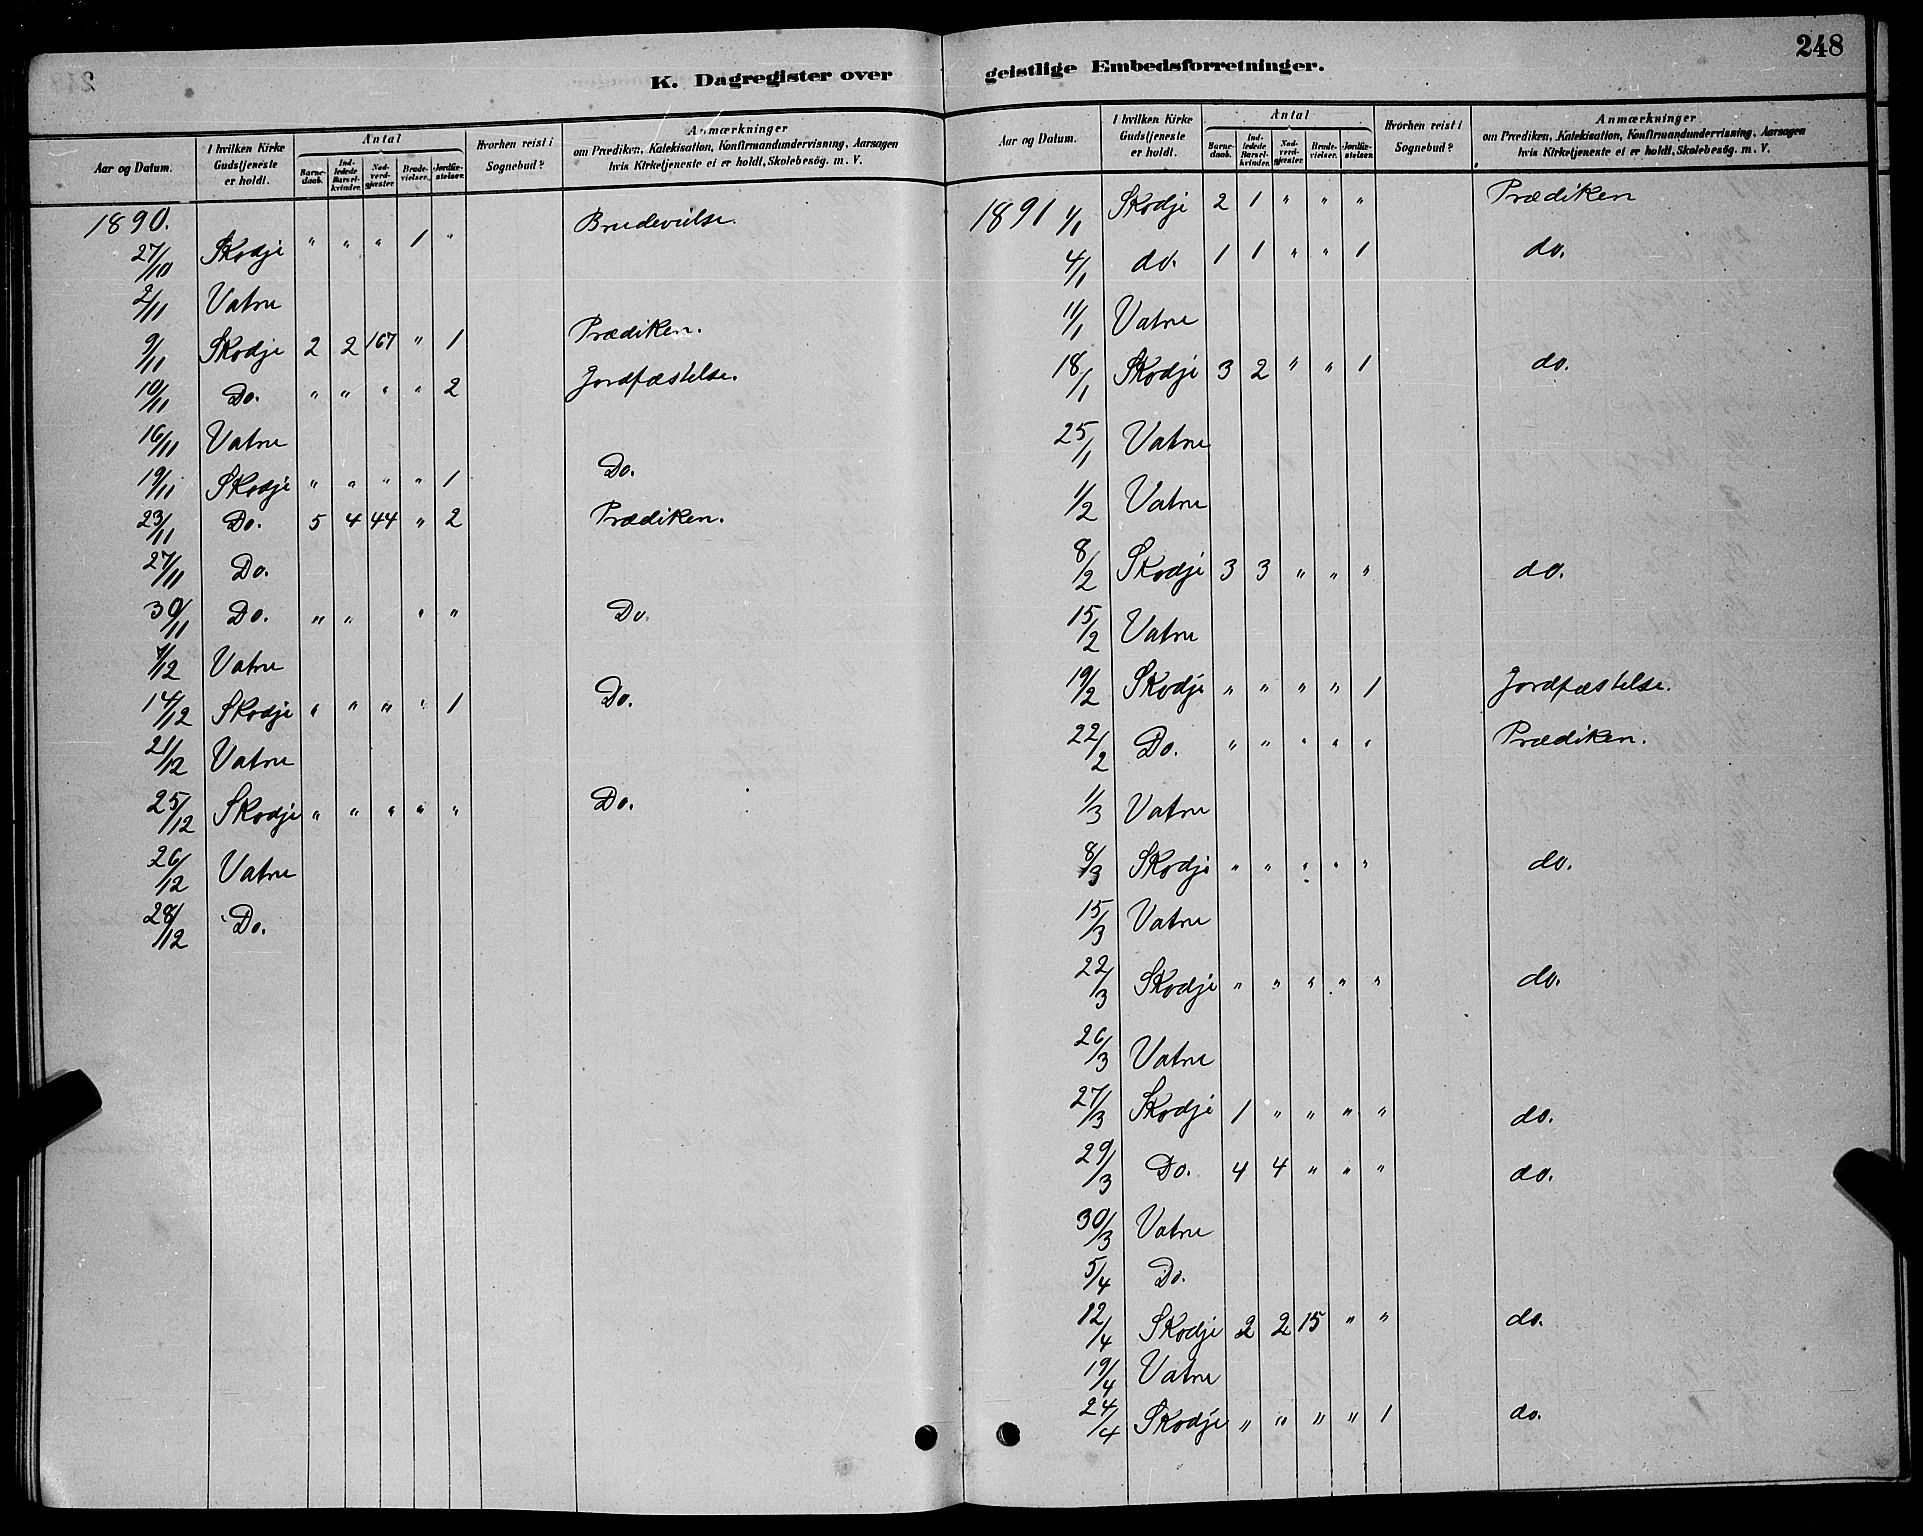 248
K. Dagregister over geistlige Embedsforretninger.
Aar og Datum. | I hvilken Kirke Gudstjeneste er holdt. | Antal | Barnedaab. | Indledede Barselkvinder. | Nadverdgjæster. | Brudevielser. | Jordfæstelser. | Hvorhen reist i Sognebud? | Anmærkninger om Prædiken, Katekisation, Konfirmandundervisning, Aarsagen hvis Kirketjeneste ei er holdt, Skolebesøg. m. V.
1890.
27/10 Skodje " " " 1 " Brudevielse.
2/11 Vatne
9/11 Skodje 2 2 167 " 1 Prædiken.
10/11 Do. " " " " 2 Jordfæstelse.
16/11 Vatne
19/11 Skodje " " " " 1 Do.
23/11 Do. 5 4 44 " 2 Prædiken.
27/11 Do.
30/11 Do. " " " " Do.
7/12 Vatne
14/12 Skodje " " " " 1 Do.
21/12 Vatne
25/12 Skodje " " " " " Do.
26/12 Vatne
28/12 Do.
Aar og Datum. | I hvilken Kirke Gudstjeneste er holdt. | Antal | Barnedaab. | Indledede Barselkvinder. | Nadverdgjæster. | Brudevielser. | Jordfæstelser. | Hvorhen reist i Sognebud? | Anmærkninger om Prædiken, Katekisation, Konfirmandundervisning, Aarsagen hvis Kirketjeneste ei er holdt, Skolebesøg. m. V.
1891 1/1 Skodje 2 1 " " " Prædiken
4/1 do. 1 1 " " 1 do.
11/1 Vatne
18/1 Skodje 3 2 " " 1 do.
25/1 Vatne
1/2 Vatne
8/2 Skodje 3 3 " " " do.
15/2 Vatne
19/2 Skodje " " " " 1 Jordfæstelse.
22/2 Do. " " " " " Prædiken.
1/3 Vatne
8/3 Skodje " " " " " do.
15/3 Vatne
22/3 Skodje " " " " " do.
26/3 Vatne
27/3 Skodje 1 " " " " do.
29/3 Do. 4 4 " " " do.
30/3 Vatne
5/4 Do.
12/4 Skodje 2 2 15 " " do.
19/4 Vatne
24/4 Skodje " " " " 1 do.